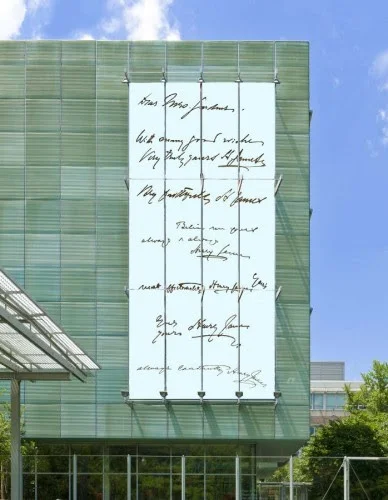 Dear Mrs Gardner.
With many good wishes
Very truly yours H James
Very faithfully H James
Believe me yours
always & always
Henry James
most affectionately Henry James
Ever
Ever
yours Henry James
always constantly Henry James